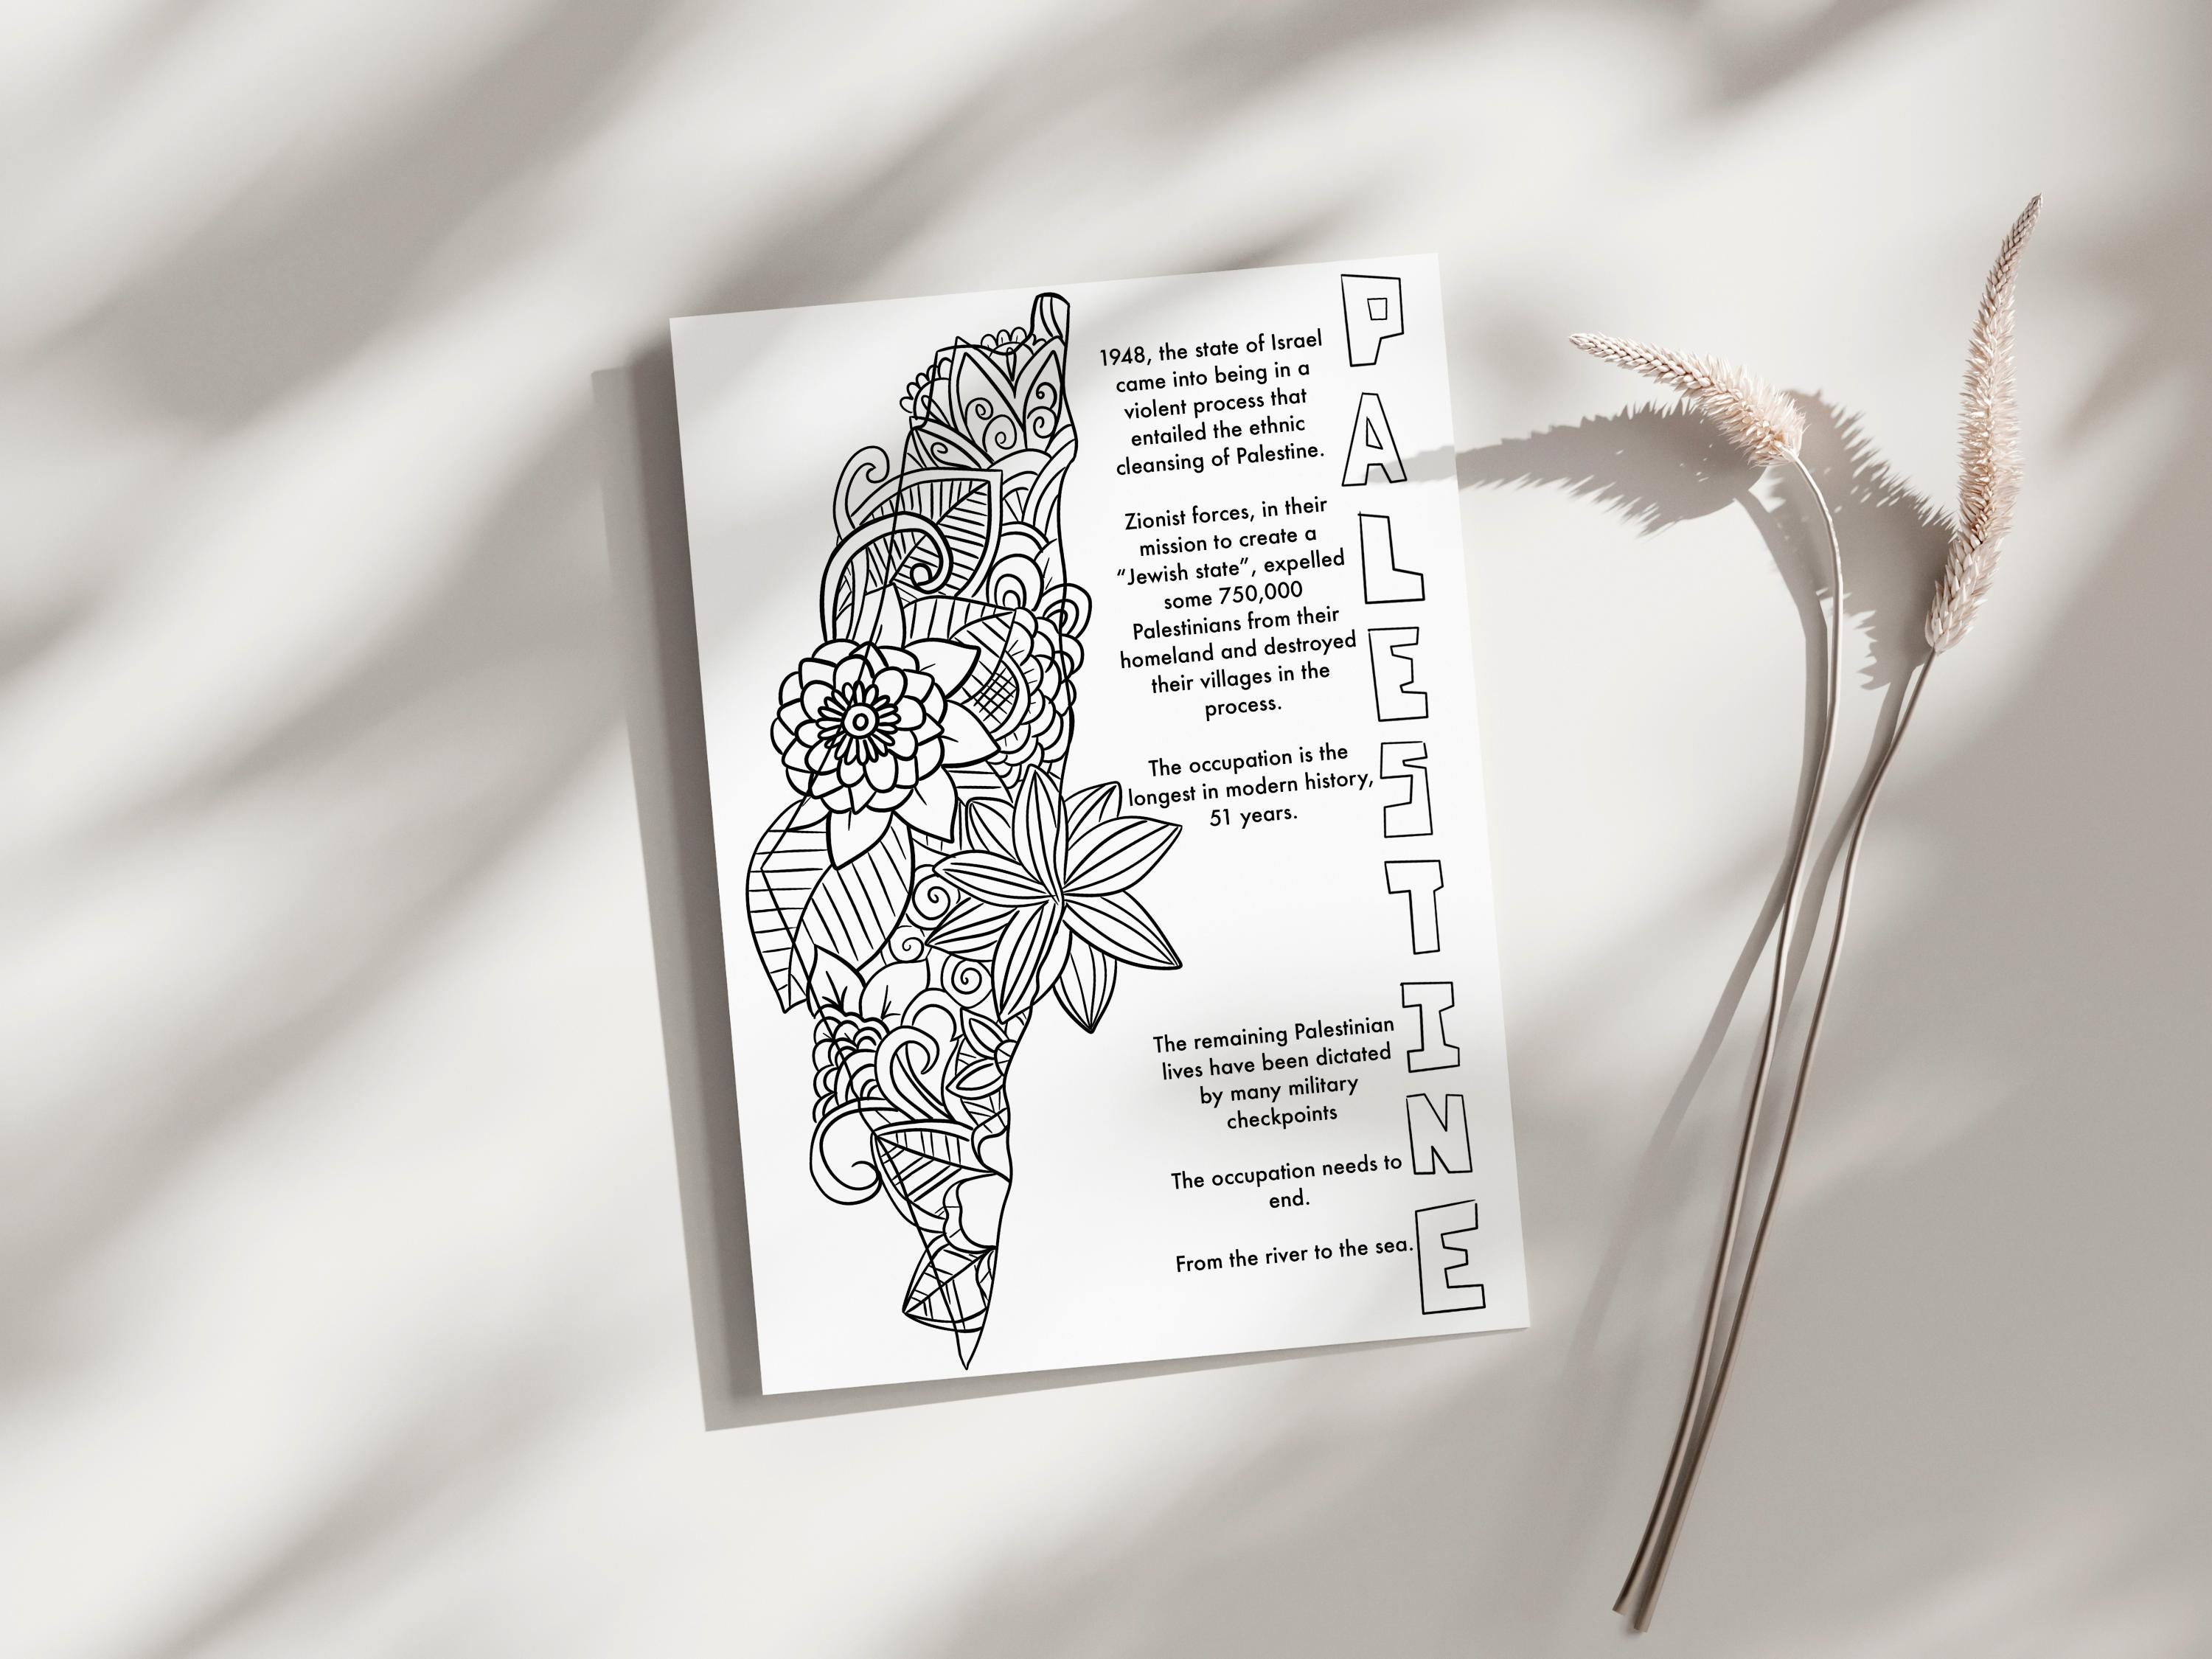 PALESTINE
1948, the state of Israel
came into being in a
violent process that
entailed the ethnic
cleansing of Palestine.
Zionist forces, in their
mission to create a
“Jewish state”, expelled
some 750,000
Palestinians from their
homeland and destroyed
their villages in the
process.
The occupation is the
longest in modern history,
51 years.
The remaining Palestinian
lives have been dictated
by many military
checkpoints
The occupation needs to
end.
From the river to the sea.